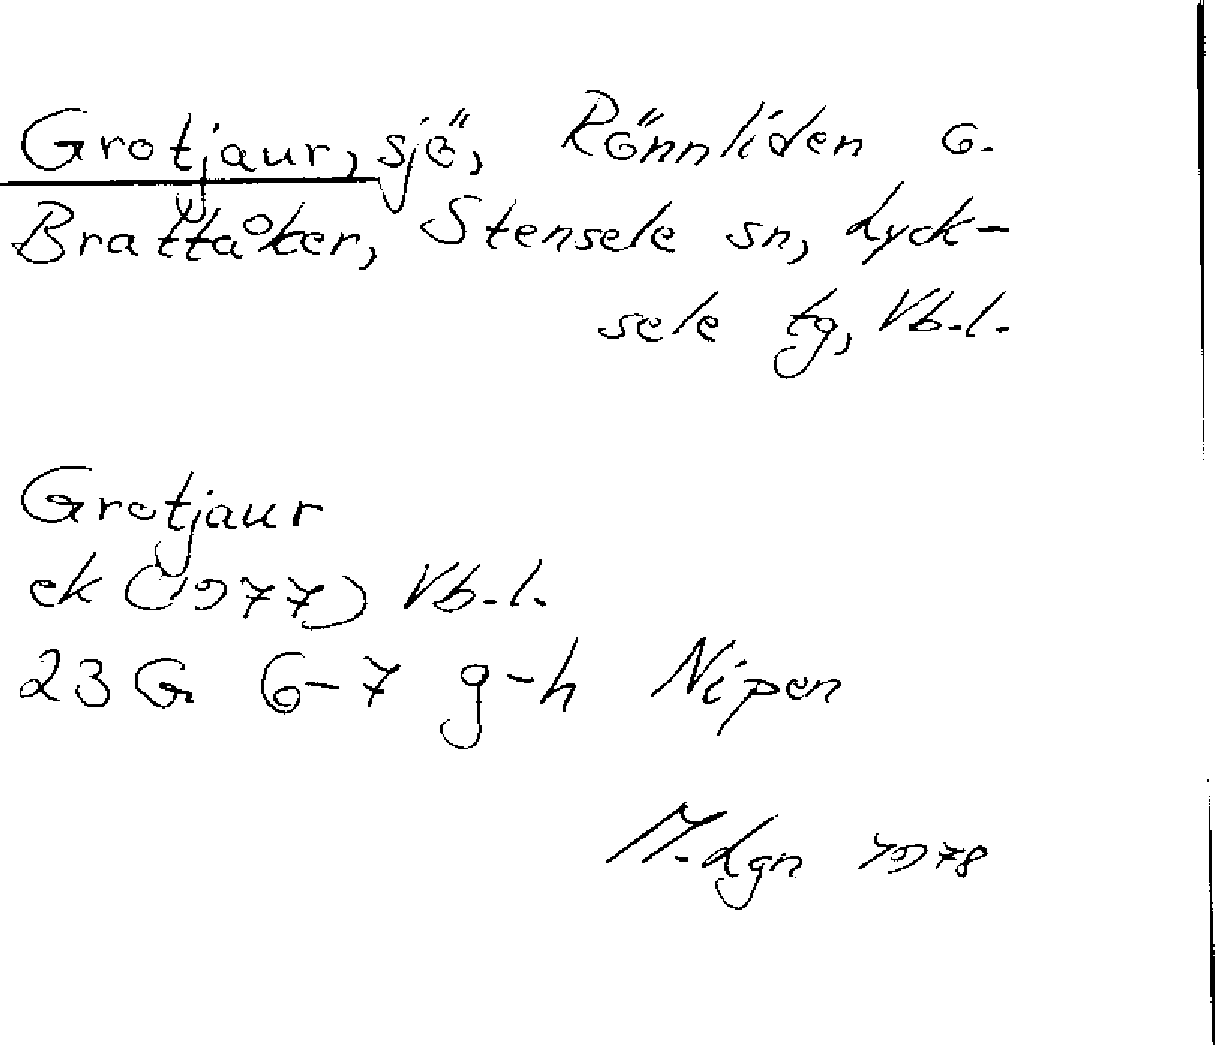 Grotjaur, sjö, Rönnliden o.
Brattåker, Stensele sn, Lyck-
sele tg, Vb.l.
Grotjaur
ek (1977) Vb.l.
23 G 6-7 g-h Nipen
M.Lgn 1978